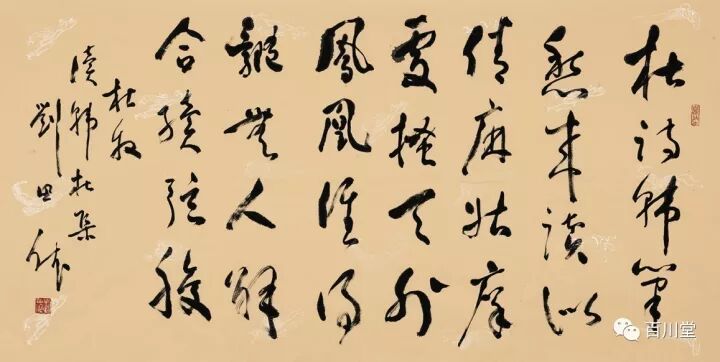 杜詩韓筆
愁來讀似
倩麻姑痒
處搔天外
鳳凰誰得
髓無人解
合續弦膠
杜牧
讀韓杜集
劉田依
百川堂